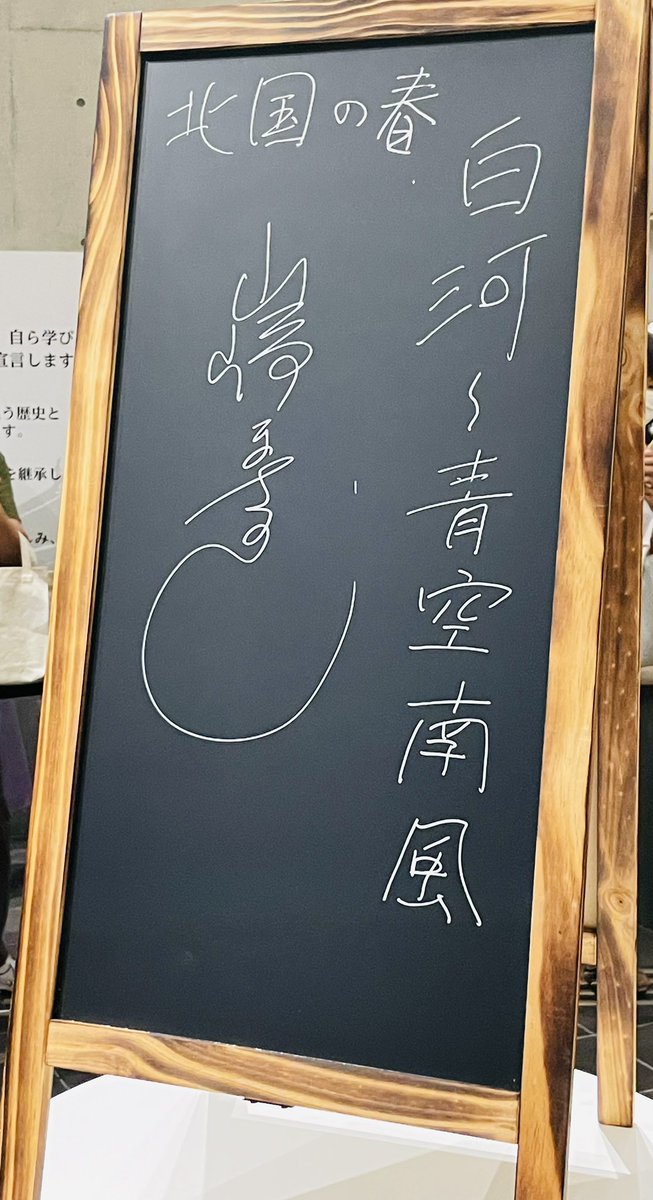 北国の春
白河〜青空南風
山崎
自ら学び
宣言します
う歴史と
す。
を継承し
み、